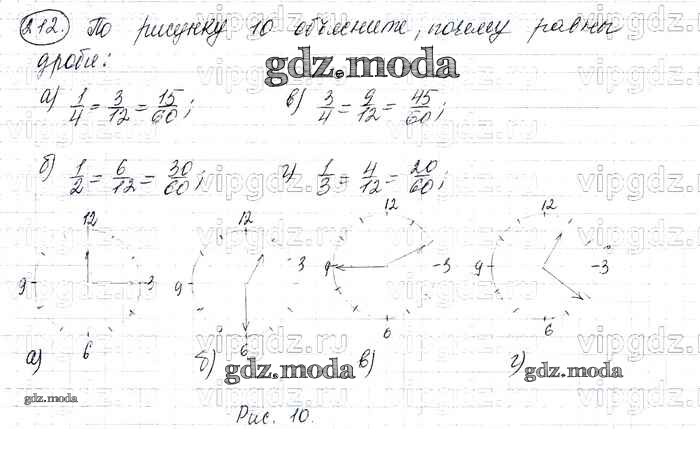 212. По рисунку 10 объясните, почему равны
дроби:
gdz.moda
а) 1/4 = 3/12 = 15/60; в) 3/4 = 9/12 = 45/60;
б) 1/2 = 6/12 = 30/60; г) 1/3 = 4/12 = 20/60;
12 12 12 12
9 3 9 3 9 3 9 3
6 6 6 6
а) б) в) г)
gdz.moda gdz.moda gdz.moda
Рис. 10.
vipgdz.ru